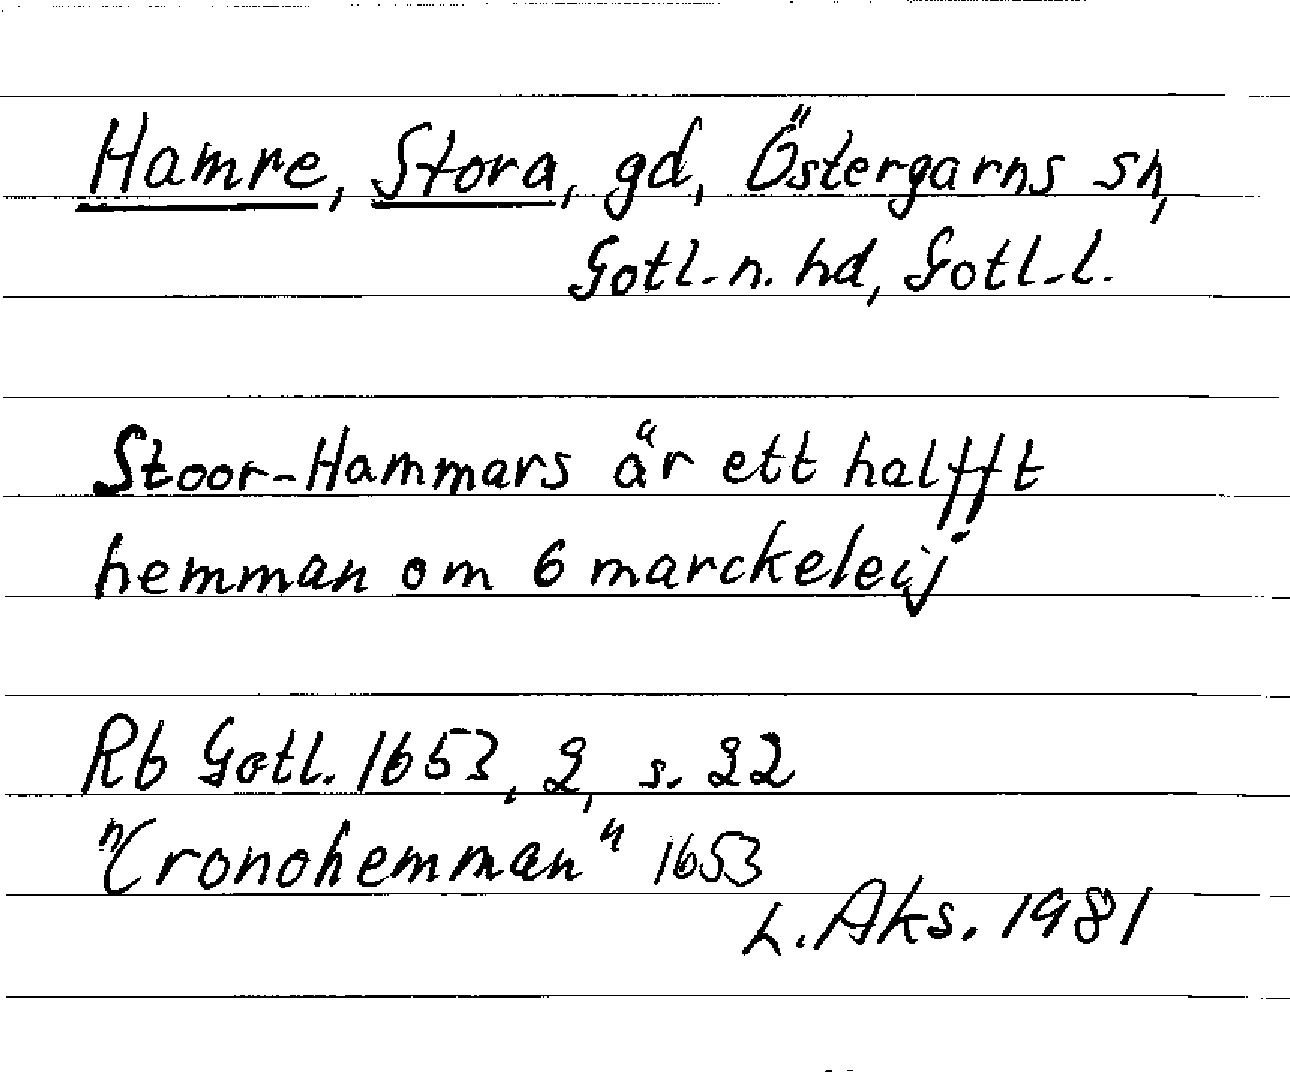 Hamre, Stora, gd, Östergarns sn,
Gotl. n. hd, Gotl. l.
Stoor-Hammars är ett halfft
hemman om 6 marckeleij
Rb Gotl. 1653, 2, s. 22
"Cronohemman" 1653
L. Aks. 1981